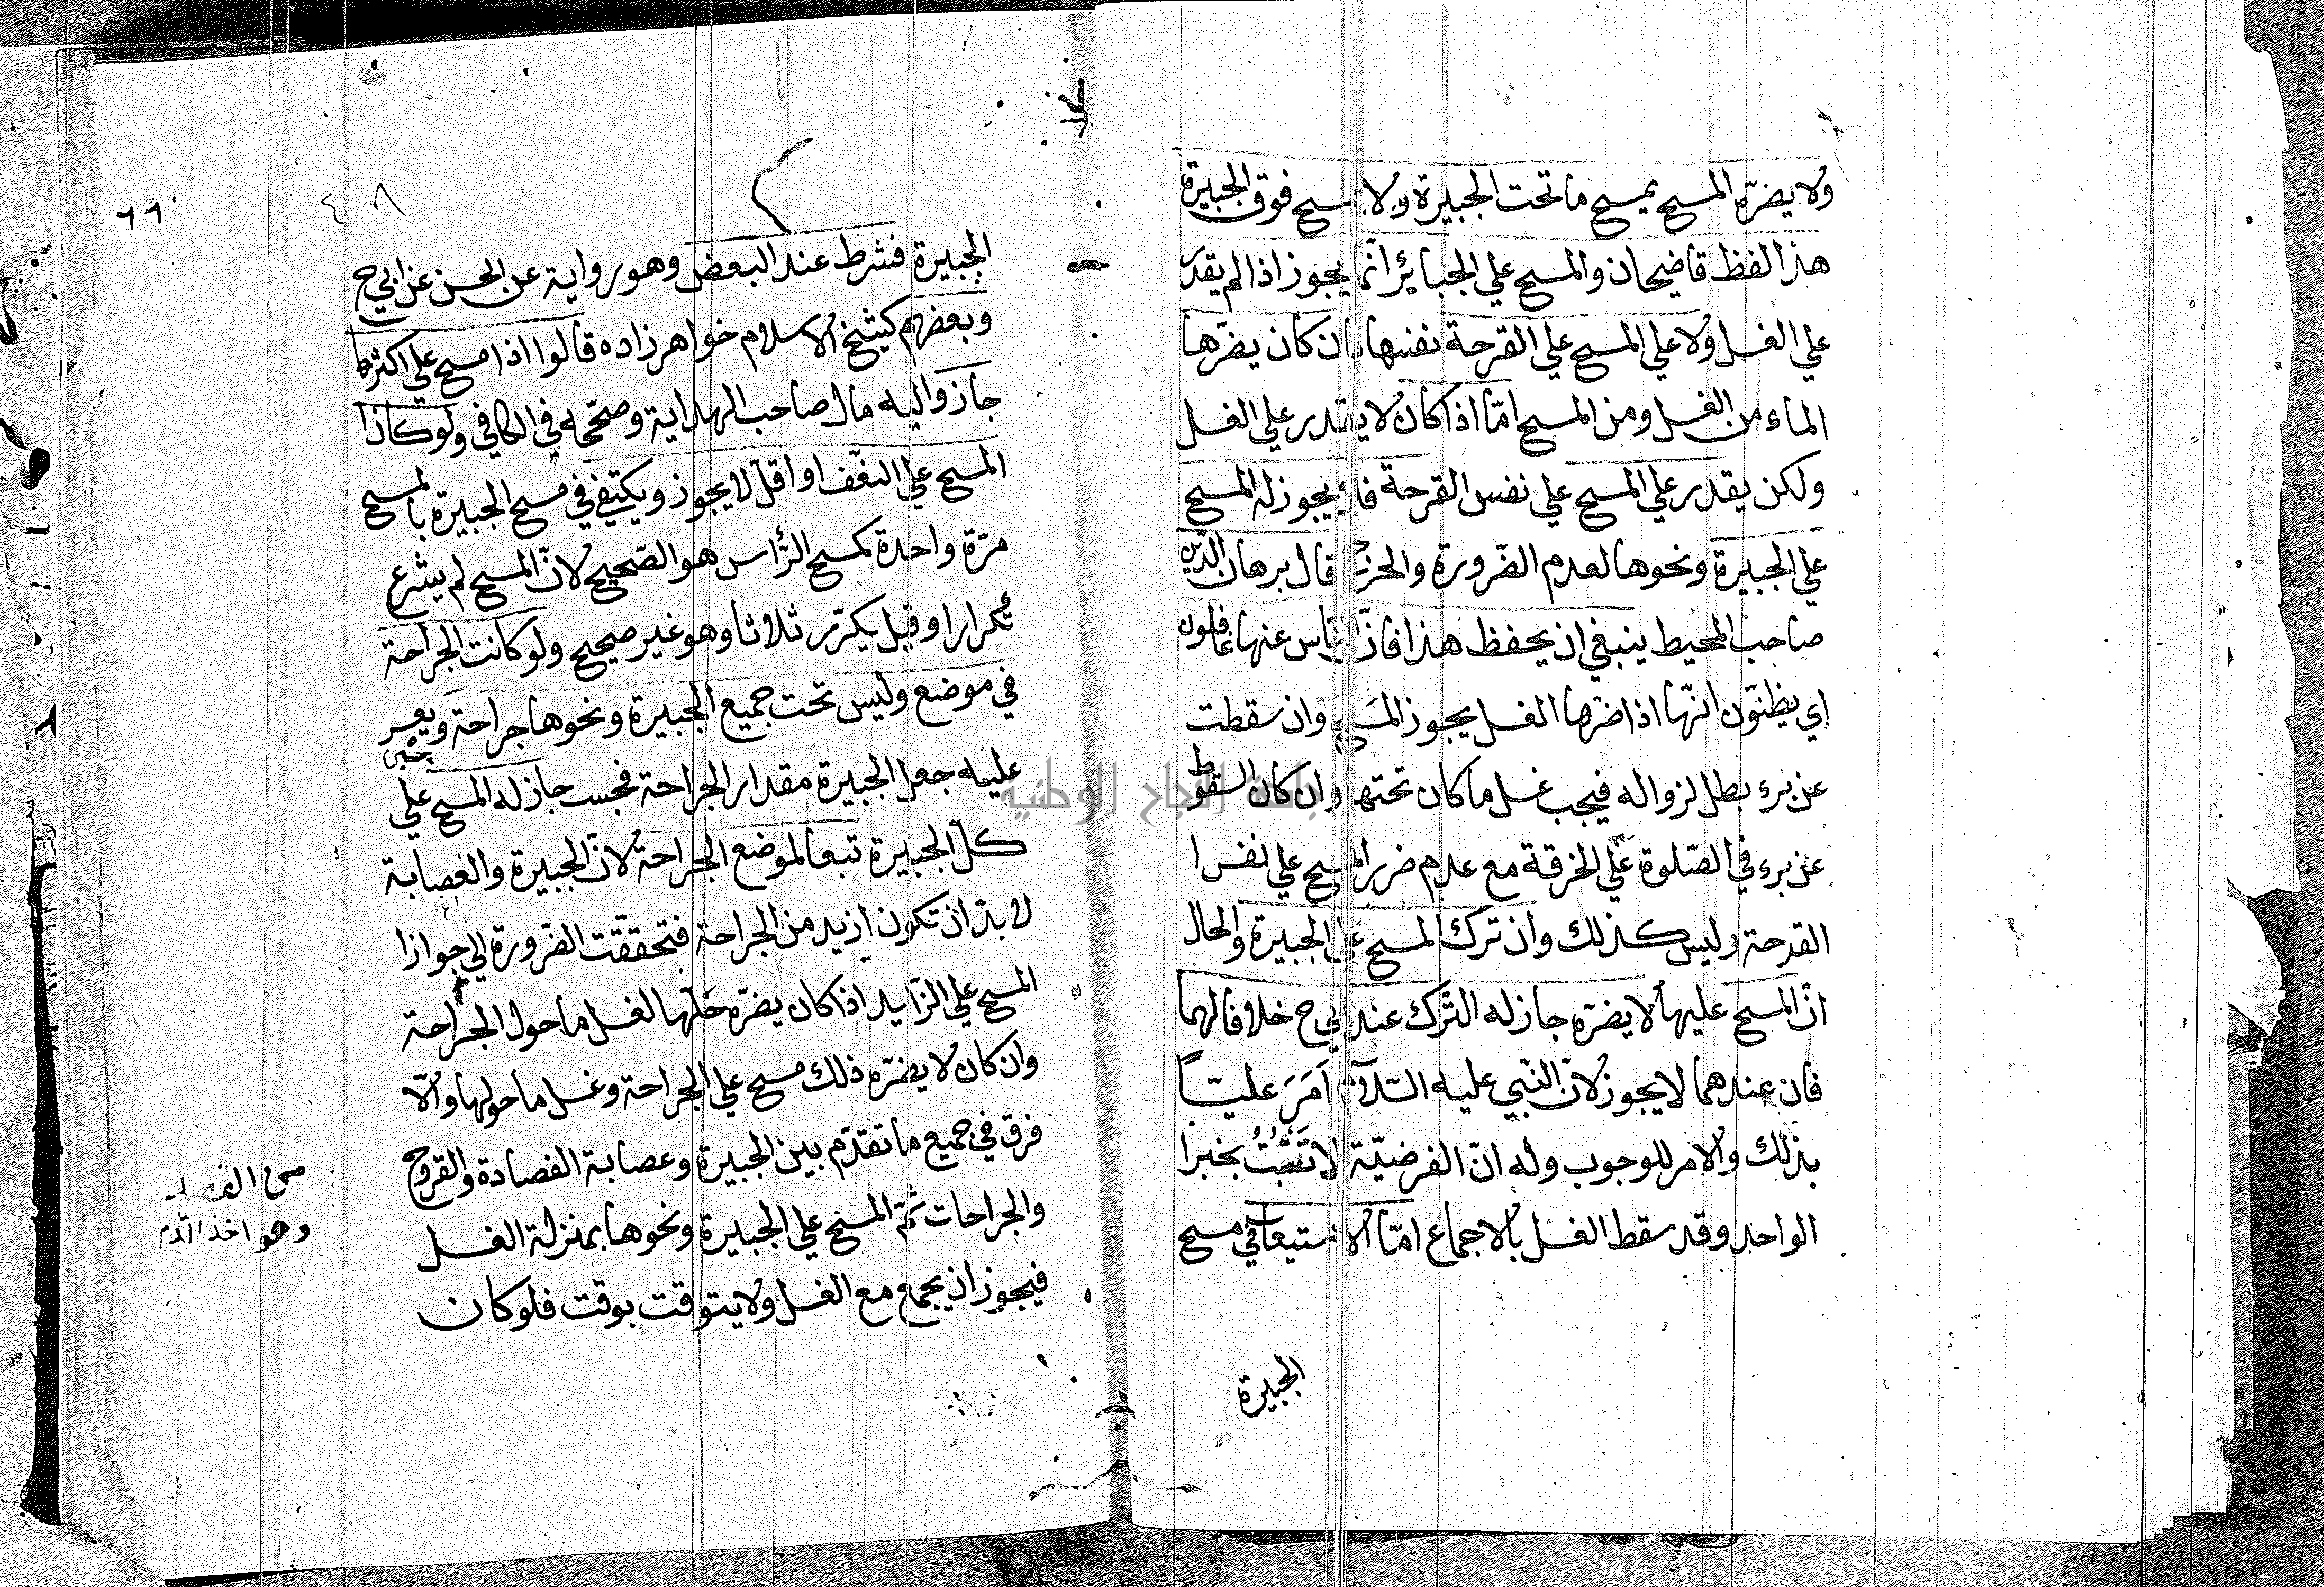 ولا يضرّه المسح يمسح ما تحت الجبيرة ولا يمسح فوق الجبيرة
هذا لفظ قاضيحان والمسح علي الجبائر انّما يجوز اذا لم يقدر
علي الغسل ولا علي المسح علي القرحة نفسها بان كان يضرّها
الماء من الغسل ومن المسح امّا اذا كان لا يقدر علي الغسل
ولكن يقدر علي المسح علي نفس القرحة فلا يجوز له المسح
علي الجبيرة ونحوها لعدم الضّرورة والحرج قال برهان الدّين
صاحب المحيط ينبغي ان يحفظ هذا فانّ النّاس عنها غافلون
اي يظنّون انّها اذا ضرها الغسل يجوز المسح وان سقطت
عن برء بطل لزواله فيجب غسل ما كان تحتها وان كان السقوط
عن برء في الصّلوة علي الخرقة مع عدم ضرر المسح علي نفس
القرحة وليس كذلك وان ترك المسح علي الجبيرة والحال
انّ المسح عليها لا يضرّه جاز له التّرك عند ابي ح خلافا لهما
فان عندهما لا يجوز لانّ النّبي عليه السّلام اَمَرَ عليّاً
بذلك والامر للوجوب وله انّ الفرضيّة لا تَثْبُتُ بخبر
الواحد وقد سقط الغسل بالاجماع امّا الاستيعاب في مسح
الجبيرة
٤٨
٦٦
الجبيرة فشرط عند البعض وهو رواية عن الحسن عن ابي ح
وبعضهم كشيخ الاسلام خواهرزاده قالوا اذا مسح علي اكثرها
جاز واليه مال صاحب الهداية وصحّحه في الكافي ولو كان
المسح علي النصّف او اقلّ لا يجوز ويكتفي في مسح الجبيرة بالمسح
مرّة واحدة كمسح الرّأس هو الصّحيح لانّ المسح لم يشرع
تكرارا وقيل يكرّر ثلاثا وهو غير صحيح ولو كانت الجراحة
في موضع وليس تحت جميع الجبيرة ونحوها جراحة ويعسر
عليه جعل الجبيرة مقدار الجراحة فحسب جاز له المسح علي
كلّ الجبيرة تبعا لموضع الجراحة لانّ الجبيرة والعصابة
لا بدّ ان تكون ازيد من الجراحة فتحقّقت الضّرورة الي جواز
المسح علي الزّايد اذا كان يضرّه حلّها لغسل ما حول الجراحة
وان كان لا يضرّه ذلك مسح علي الجراحة وغسل ما حولها ولا
فرق في جميع ما تقدّم بين الجبيرة وعصابة الفصادة والقروح
والجراحات ثمّ المسح علي الجبيرة ونحوها بمنزلة الغسل
فيجوز ان يجمع مع الغسل ولا يتوقت بوقت فلو كان
وهو اخذ الدّم
جامعة النجاح الوطنية